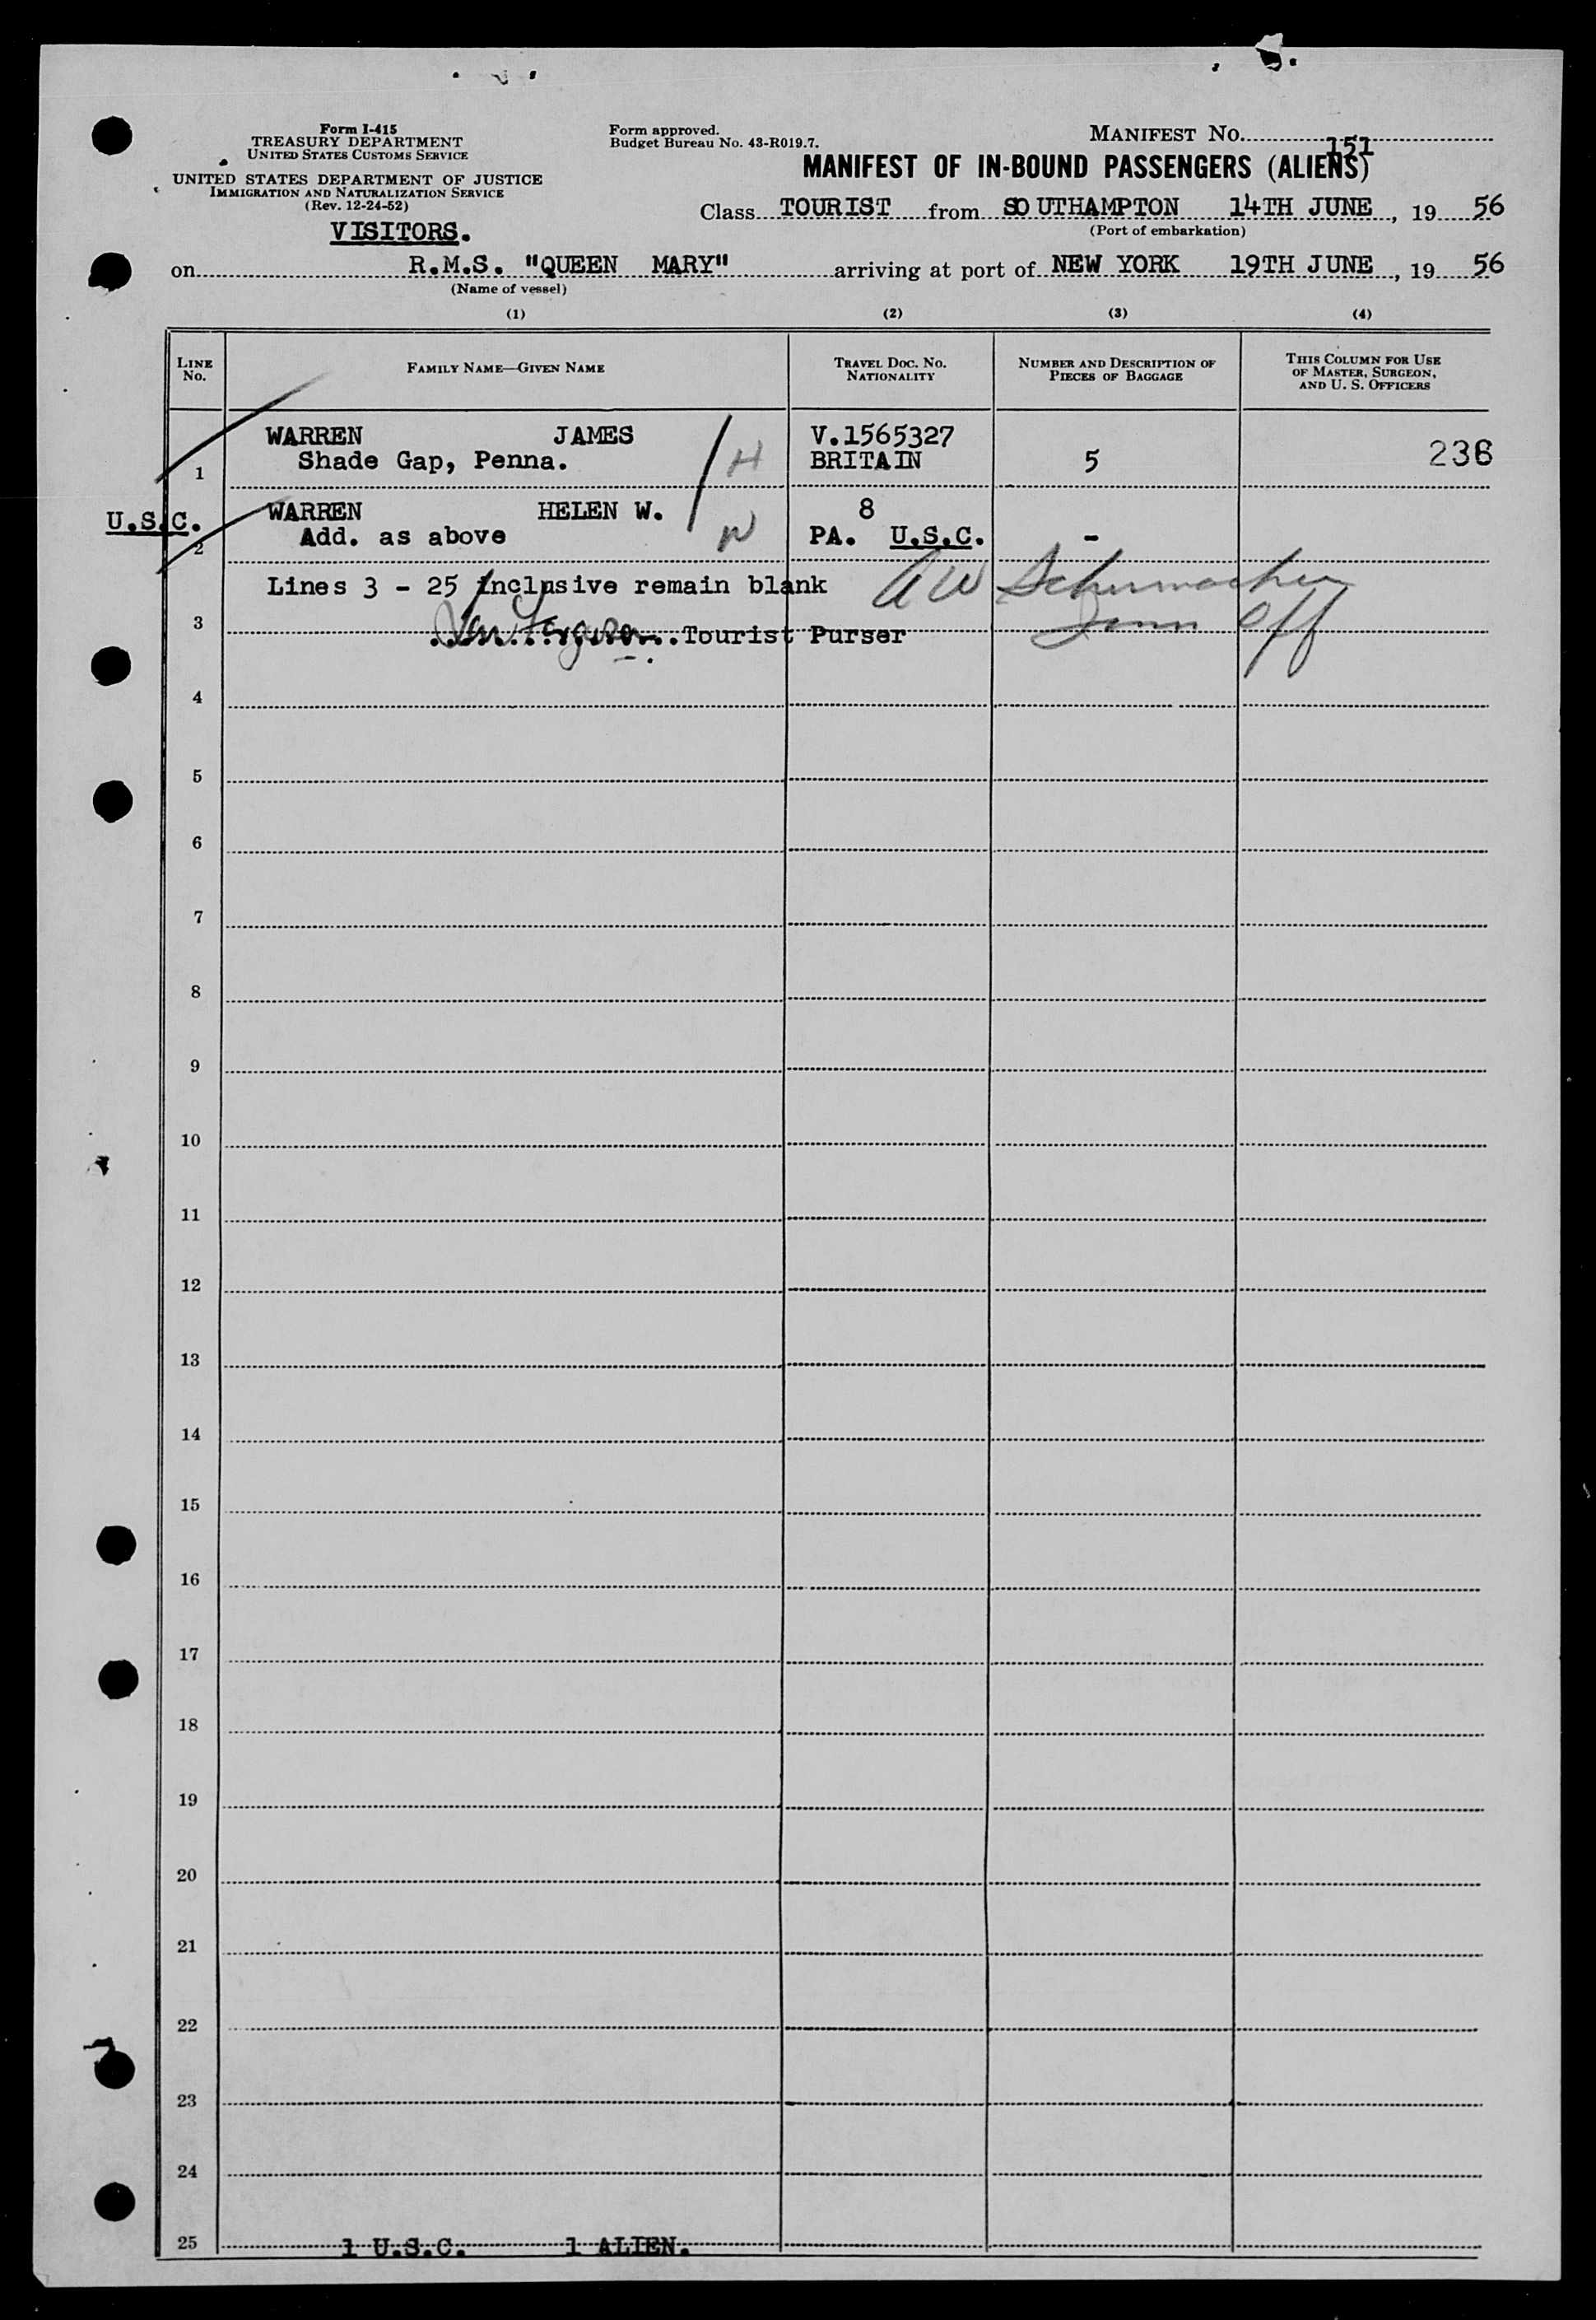 Form I-415
TREASURY DEPARTMENT
UNITED STATES CUSTOMS SERVICE
UNITED STATES DEPARTMENT OF JUSTICE
IMMIGRATION AND NATURALIZATION SERVICE
(Rev. 12-24-52)
VISITORS.
Form approved.
Budget Bureau No. 43-R019.7.
MANIFEST NO. 151
MANIFEST OF IN-BOUND PASSENGERS (ALIENS)
Class TOURIST from SOUTHAMPTON 14TH JUNE, 19 56
(Port of embarkation)
on R.M.S. "QUEEN MARY" arriving at port of NEW YORK 19TH JUNE, 19 56
(Name of vessel)
(1) (2) (3) (4)
LINE NO. FAMILY NAME—GIVEN NAME TRAVEL DOC. NO. NATIONALITY NUMBER AND DESCRIPTION OF PIECES OF BAGGAGE THIS COLUMN FOR USE OF MASTER, SURGEON, AND U. S. OFFICERS
WARREN JAMES V.1565327
1 Shade Gap, Penna. H BRITAIN 5 236
U.S.C. WARREN HELEN W. 8
2 Add. as above W PA. U.S.C. -
Lines 3 - 25 inclusive remain blank AW Schumacher
3 Ferguson Tourist Purser Imm Off
4
5
6
7
8
9
10
11
12
13
14
15
16
17
18
19
20
21
22
23
24
25 1 U.S.C. 1 ALIEN.